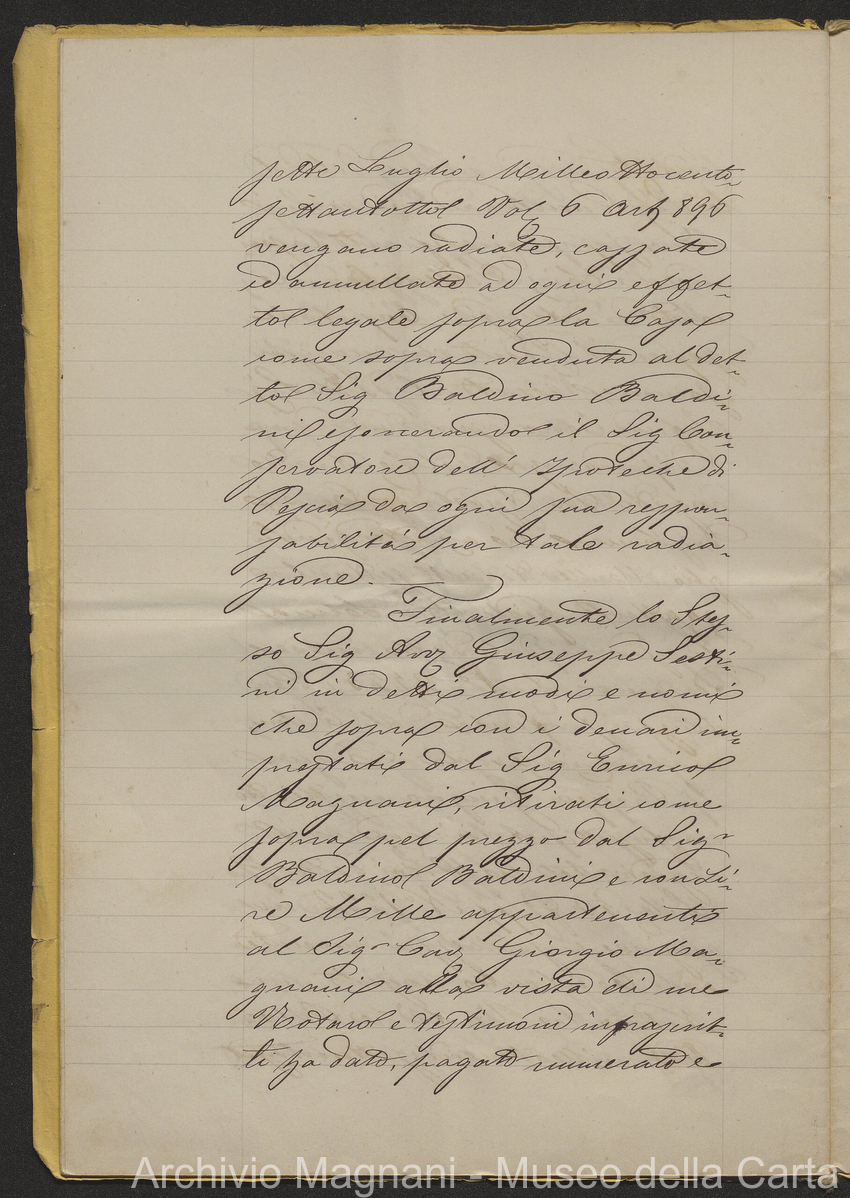 sette Luglio Milleottocento-
settantotto Vol. 6 Art. 896
vengano radiate, cassate
ed annullate ad ogni effet-
to legale sopra la Casa
come sopra venduta al det-
to Sig Baldino Baldi-
ni esonerando il Sig Con-
servatore dell' Ipoteche di
Pescia da ogni sua respon-
sabilità per tale radia-
zione. —
Finalmente lo Stes-
so Sig Avv Giuseppe Sesti-
ni in detti modi e nomi
che sopra con i denari im-
prestati dal Sig Enrico
Magnani, ritirati come
sopra pel prezzo dal Sigr
Baldino Baldini e con Li-
re Mille appartenenti
al Sigr Cav. Giorgio Ma-
gnani alla vista di me
Notaro e testimoni infrascrit-
ti ha dato, pagato numerato e
Archivio Magnani - Museo della Carta